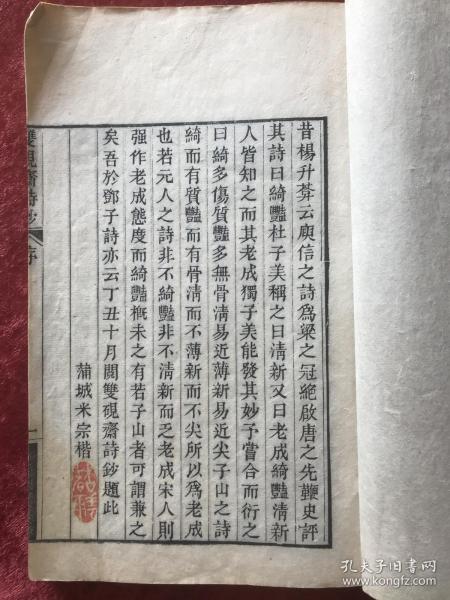 昔楊升菴云庾信之詩爲梁之冠絕啟唐之先鞭史評
其詩曰綺豔杜子美稱之曰清新又曰老成綺豔清新
人皆知之而其老成獨子美能發其妙予嘗合而衍之
曰綺多傷質豔多無骨清易近薄新易近尖子山之詩
綺而有質豔而有骨清而不薄新而不尖所以爲老成
也若元人之詩非不綺豔非不清新而乏老成宋人則
强作老成態度而綺豔概未之有若子山者可謂兼之
矣吾於鄧子詩亦云丁丑十月閱雙硯齋詩鈔題此
蒲城米宗楷
雙硯齋詩鈔
序
一
孔夫子旧书网